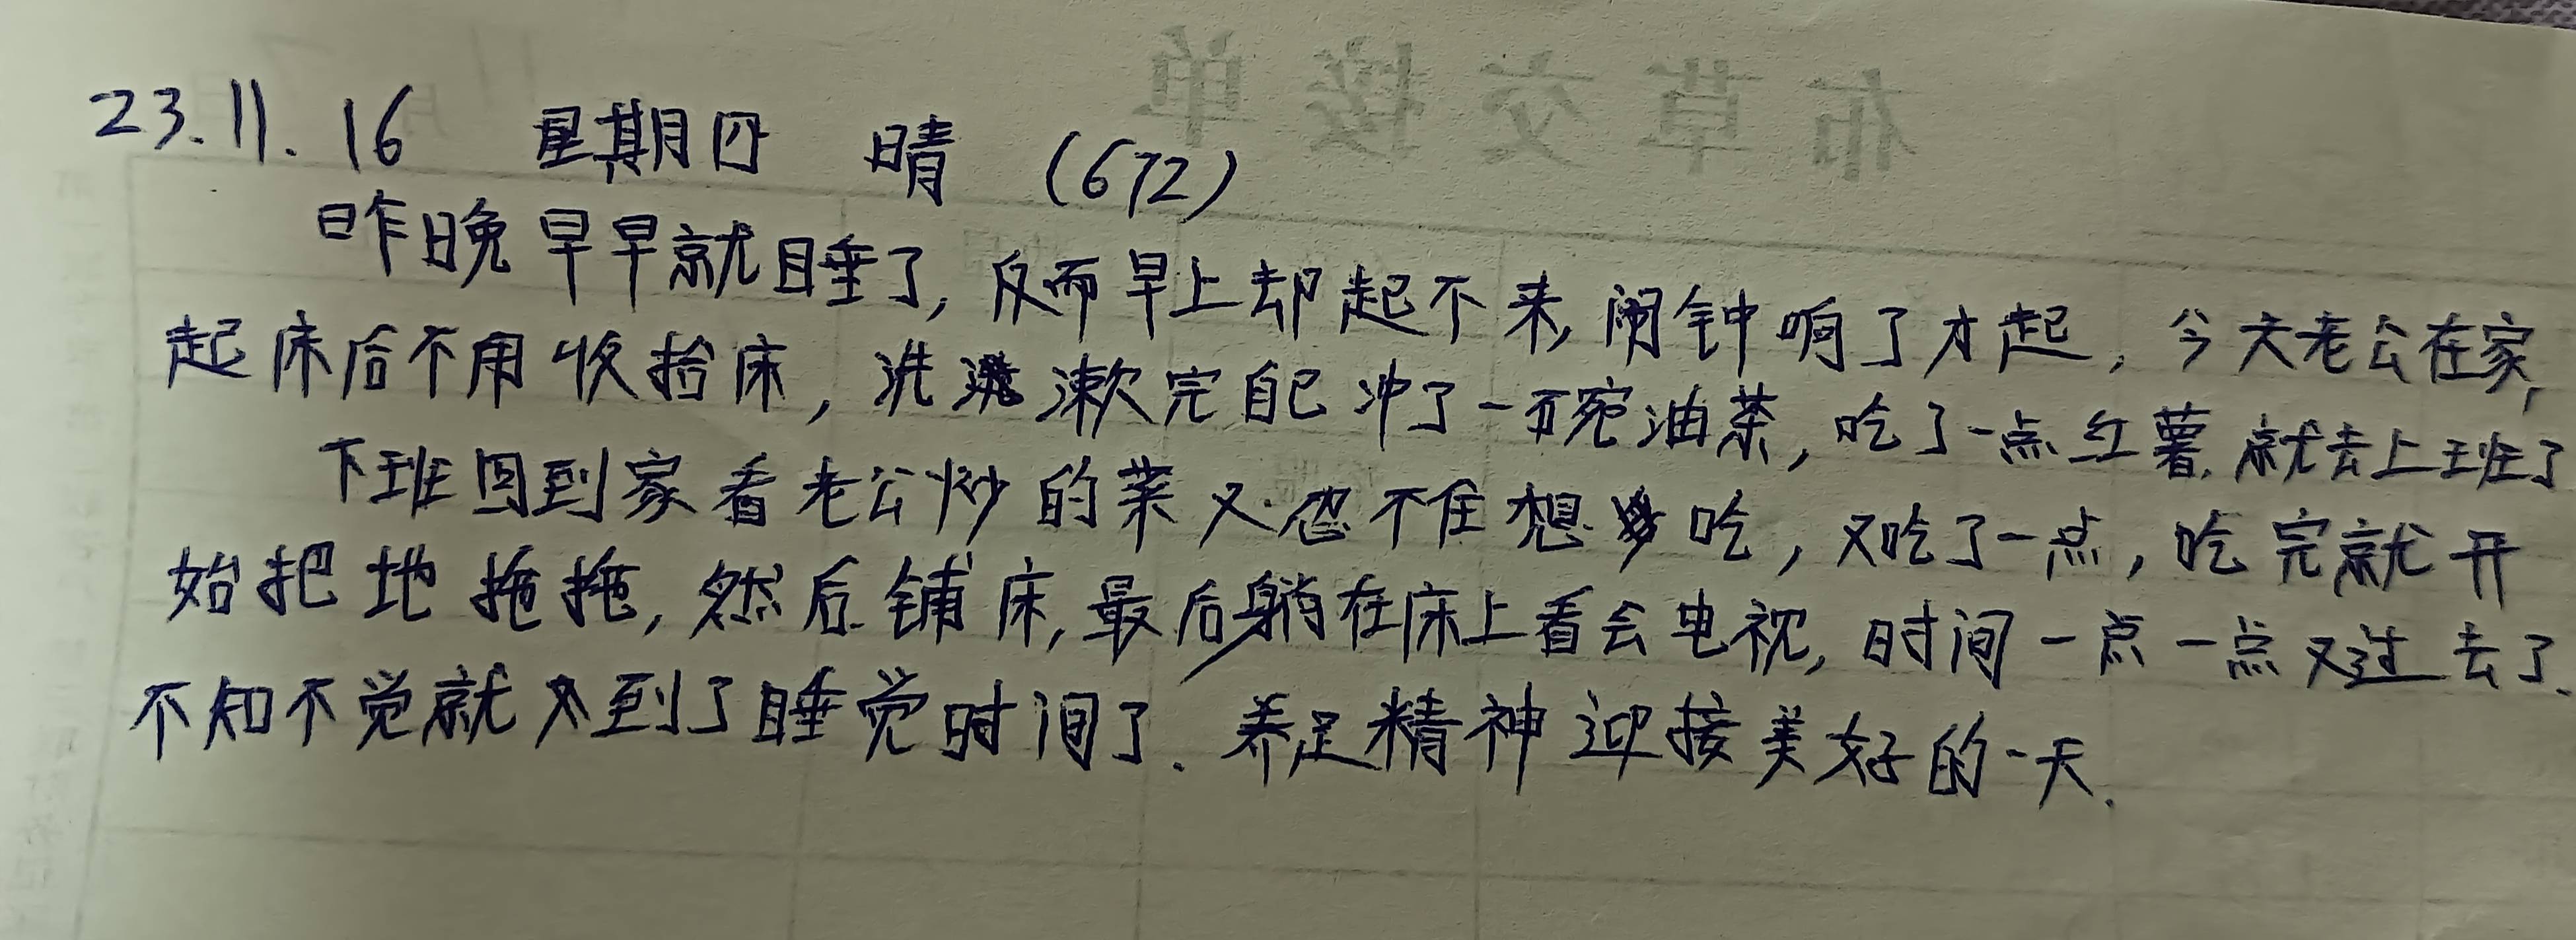 布草交接单
23.11.16 星期四 晴 (672)
昨晚早早就睡了,反而早上却起不来,闹钟响了才起,今天老公在家,
起床后不用收拾床,洗漱完自己冲了一碗油茶,吃了一点红薯,就去上班了
下班回到家看老公炒的菜又忍不住想吃,又吃了一点,吃完就开
始把地拖拖,然后铺床,最后躺在床上看会电视,时间一点一点又过去了.
不知不觉就又到了睡觉时间了.养足精神迎接美好的一天.